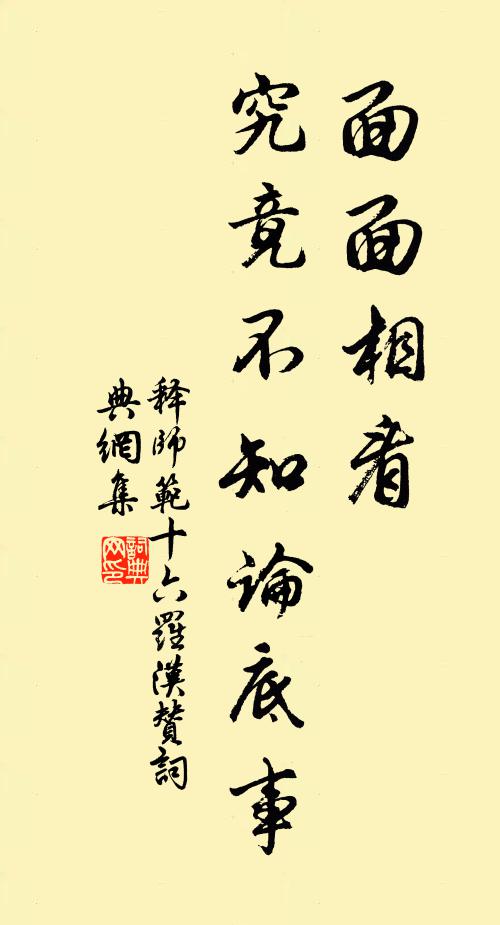 面面相看
究竟不知論底事
释師範十六羅漢贊詞
典網集
詞典
网印